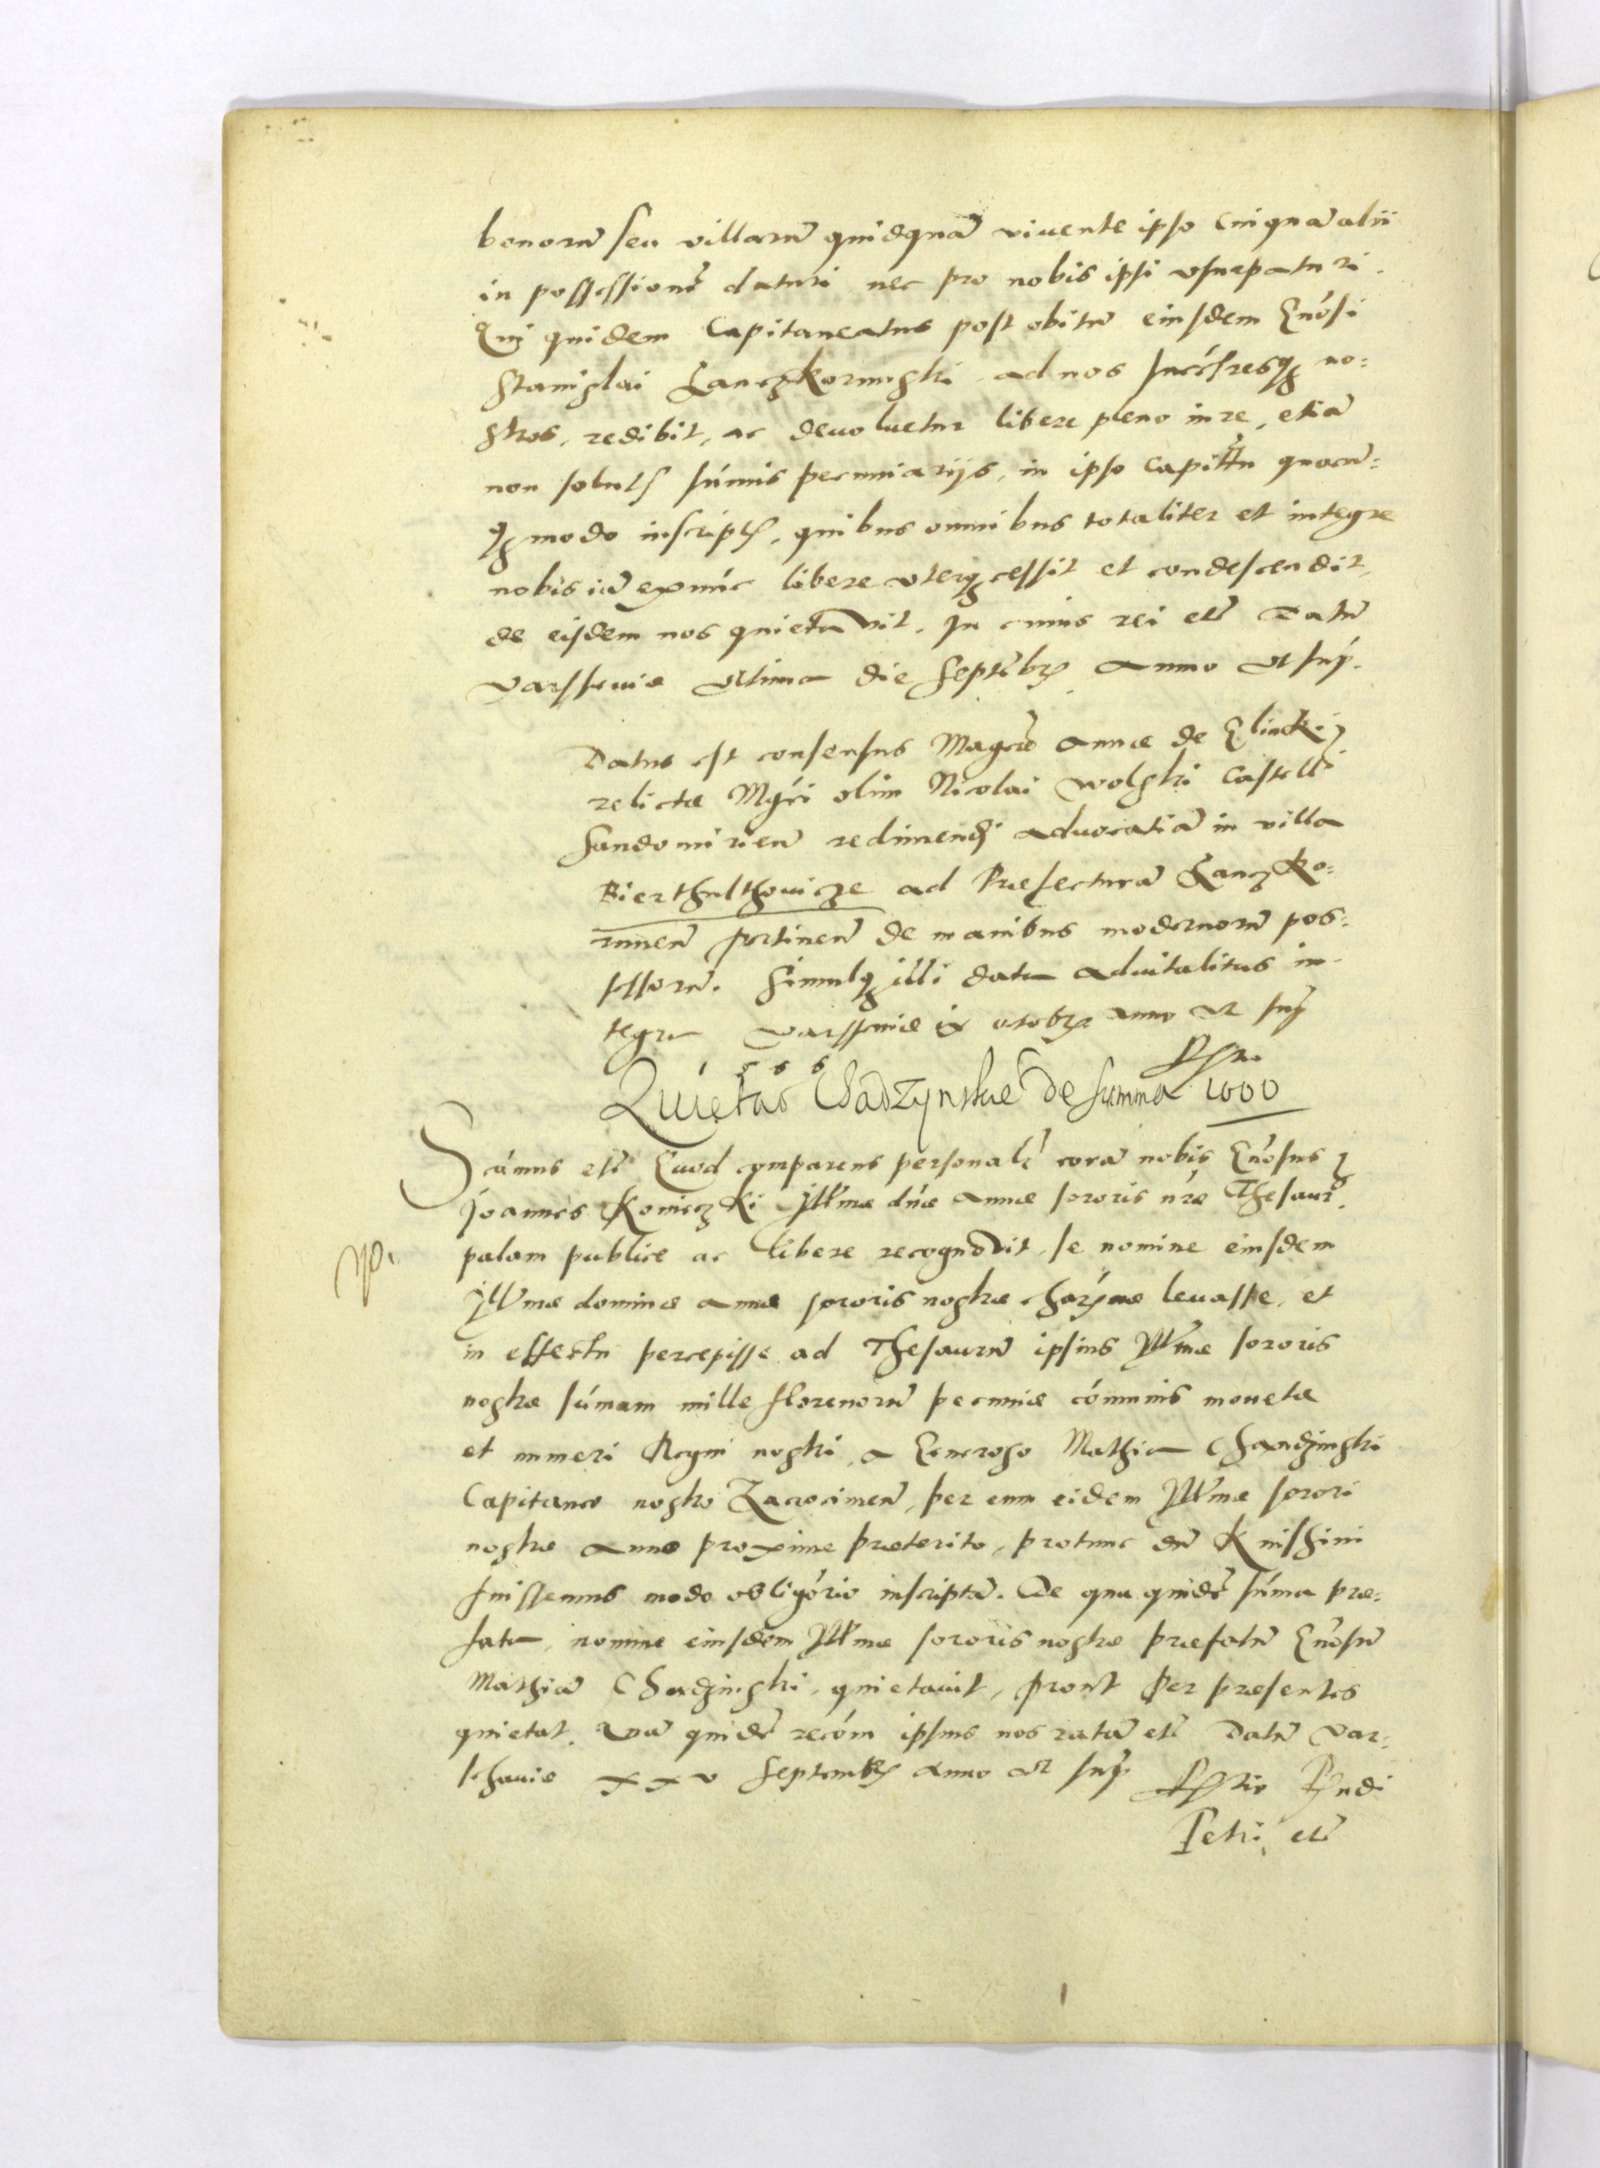 bonorũ seu villarũ quidquã viuente ipso Cuiquã alii
in possessionẽ daturi nec pro nobis ipsi vsurpaturi.
Qui quidem Capitaneatus post obitũ eiusdem Gnosi
Stanislai Lanczkorunski ad nos successoresq no=
stros, redibit, ac deuoluetur libere pleno iure, etiã
non solutis sumis pecuniarijs, in ipso Capittu quocũ=
q modo inscriptis, quibus omnibus totaliter et integre
nobis iã exnunc libere vterq cessit et condescendit,
de eisdem nos quietauit. In cuius rei etc Datũ
Varssouiæ vltima die Septẽbris Anno vt sup.
Datus est consensus Magcæ Annæ de Glinki
relictæ Mgci olim Nicolai Wolski Castelli
Sandomirieñ redimendi aduocatiã in villa
Bierthulthouicze ad Præfecturã Lanczko=
runeñ pertineñ de manibus modernorũ pos=
sessorũ. Simulq illi data aduitalitas in=
tegra Varssouiæ ix octobris Anno vt sup
1566
Quietao Chadzynskie de summa 1000
Scimus etc Quod comparens personalr corã nobis Gnosus
Joannes Konieczki Illmæ dnæ Annæ sororis nræ Thesaur.
palam publice ac libere recognouit, se nomine eiusdem
Illmæ dominæ Annæ sororis nostræ charissmæ leuasse, et
in effectu percepisse ad Thesaurũ ipsius Illmæ sororis
nostræ sumam mille florenorũ pecuniæ comunis monetæ
et numeri Regni nostri, a Generoso Mathia Chandzinski
Capitaneo nostro Zacrocimeñ, per eum eidem Illmæ sorori
nostræ anno proxime præterito, protunc dũ Knishini
fuissemus modo obligorio inscriptã. De qua quidẽ suma præ=
fata, nomine eiusdem Illmæ sororis nostræ præfatũ Gnosũ
Mathiã Chadzinski, quietauit, prout per præsentes
quietat. Quã quidẽ recom ipsius nos ratã etc Datũ Var=
schauiæ xxv Septembris Anno vt sup
Petri etc